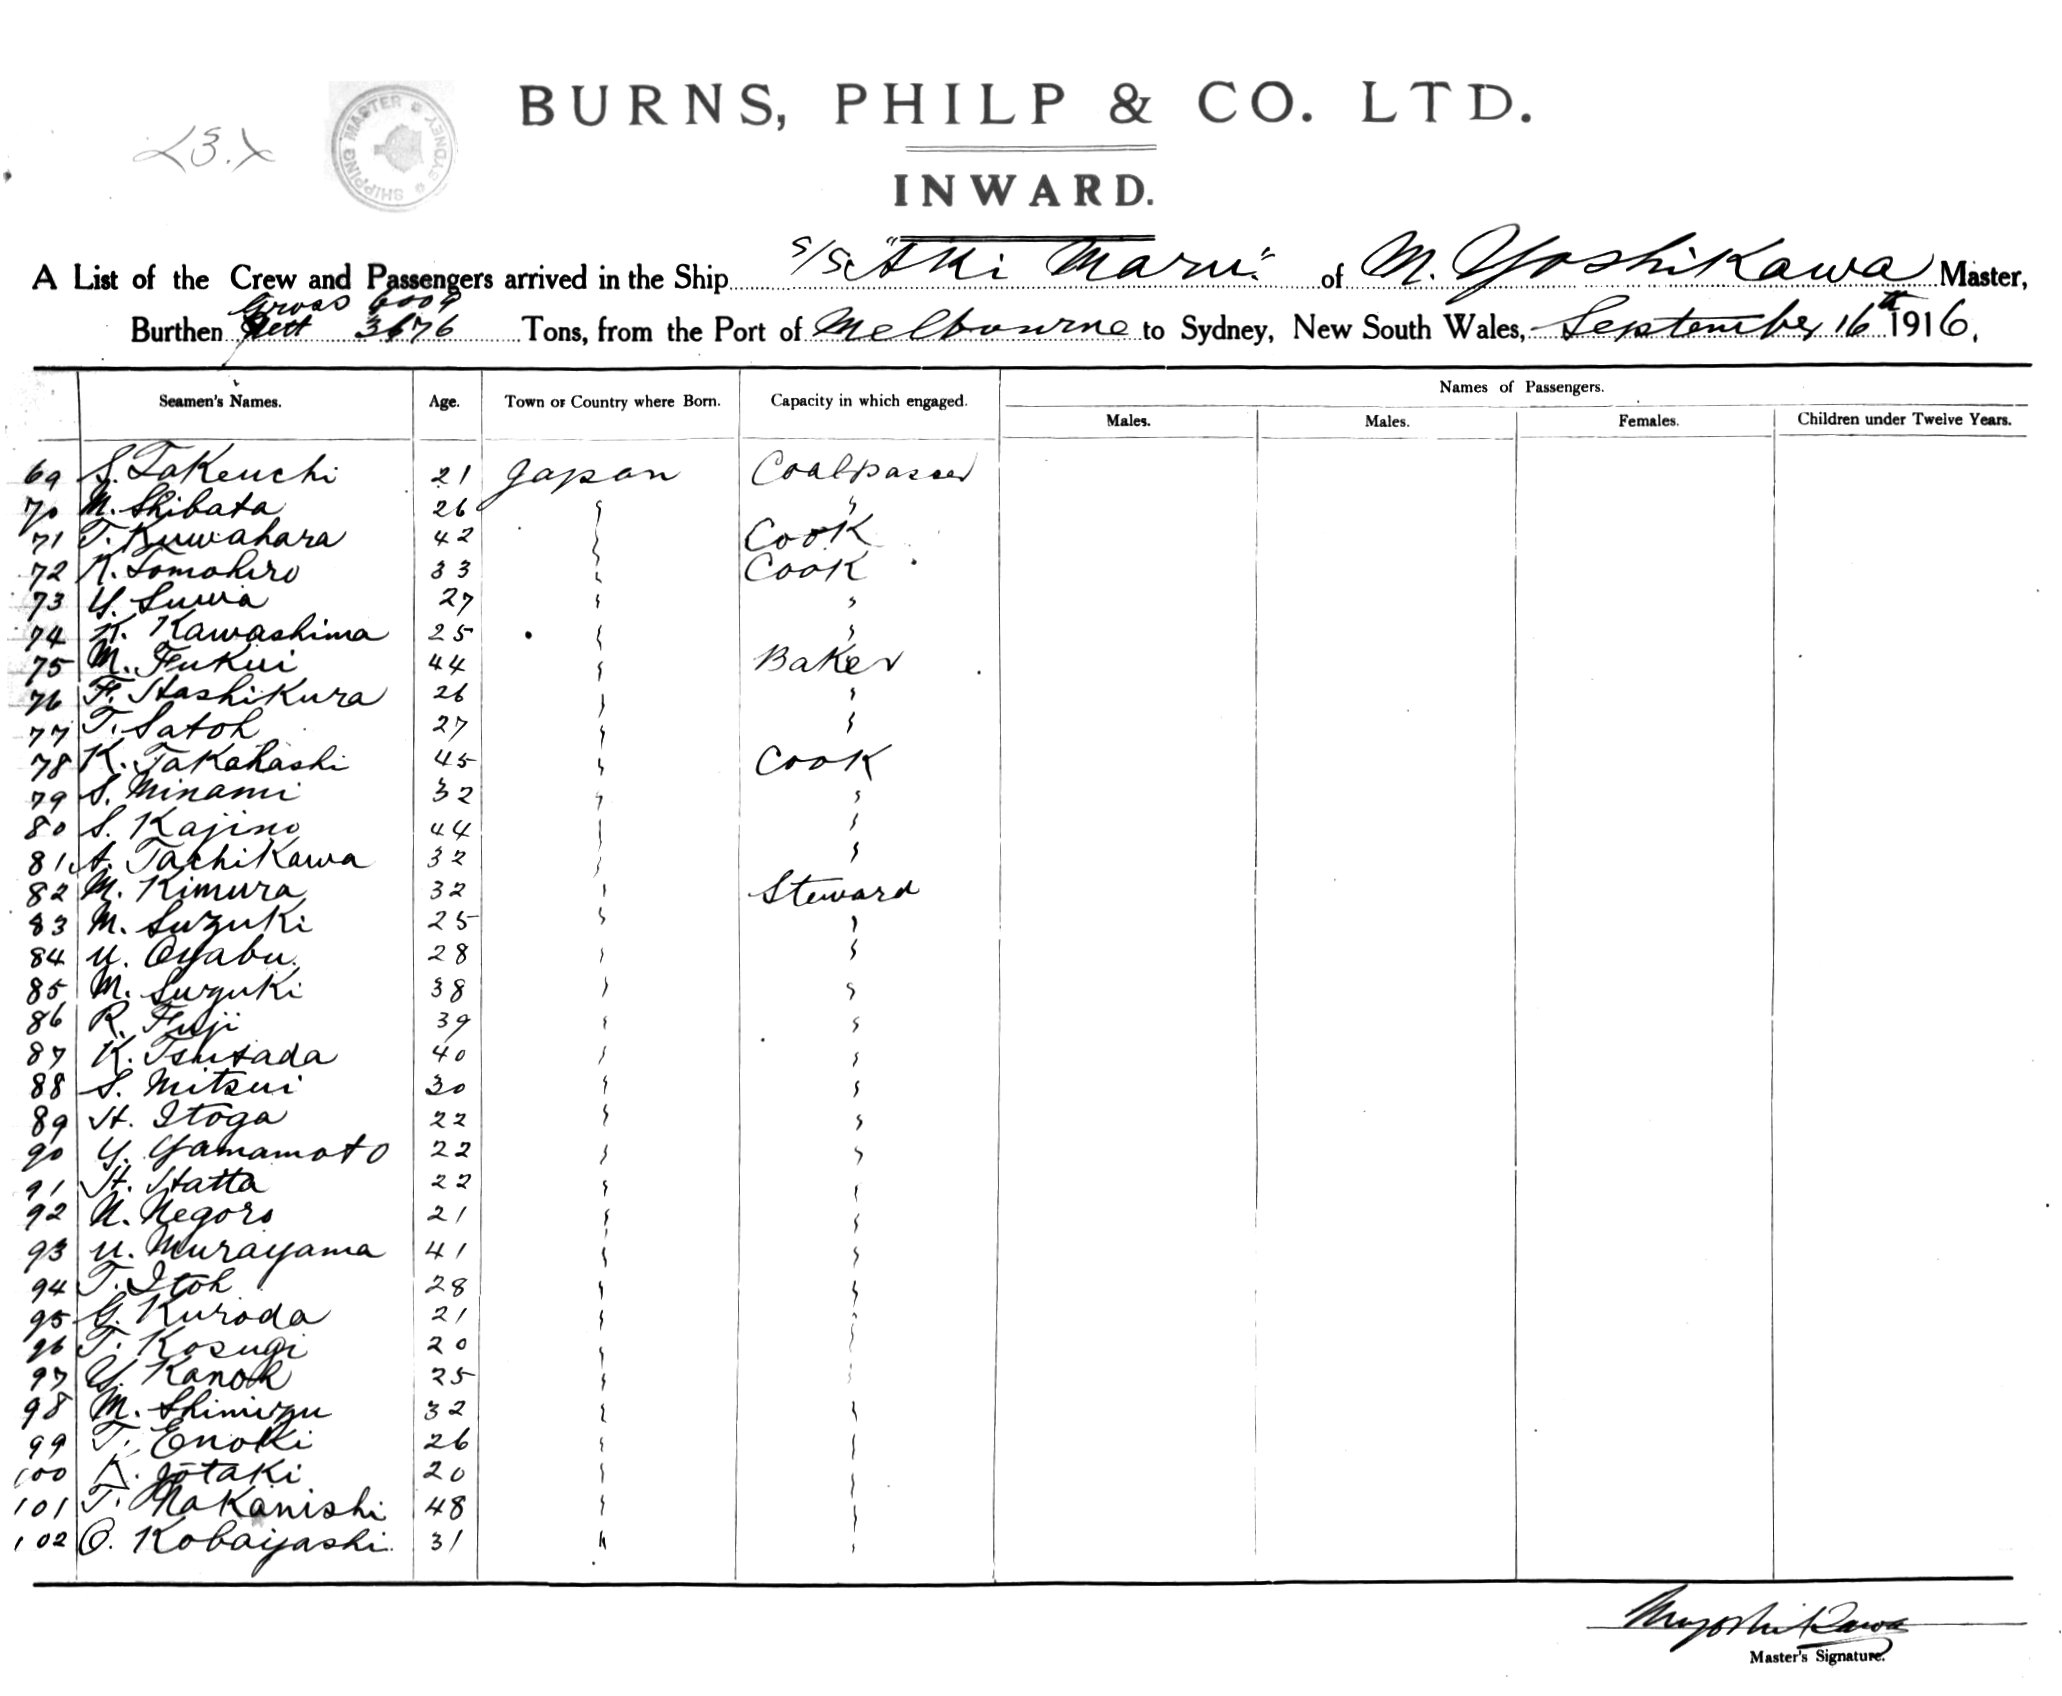 L3.X
SHIPPING MASTER SYDNEY
BURNS, PHILP & CO. LTD.
INWARD.
A List of the Crew and Passengers arrived in the Ship S/S "Aki Maru" of M. Yoshikawa Master,
Gross 6009
Burthen Nett 3676 Tons, from the Port of Melbourne to Sydney, New South Wales, September 16th 1916.
Names of Passengers.
Seamen's Names. Age. Town or Country where Born. Capacity in which engaged. Males. Males. Females. Children under Twelve Years.
69 S. Takeuchi 21 Japan Coalpasser
70 M. Shibata 26 " "
71 T. Kuwahara 42 " Cook
72 K. Tomohiro 33 " Cook
73 Y. Suwa 27 " "
74 K. Kawashima 25 " "
75 M. Fukui 44 " Baker
76 F. Hashikura 26 " "
77 T. Satoh 27 " "
78 K. Takahashi 45 " Cook
79 S. Minami 32 " "
80 S. Kajino 44 " "
81 A. Tachikawa 32 " "
82 M. Kimura 32 " Steward
83 M. Suzuki 25 " "
84 U. Oyabu 28 " "
85 M. Suzuki 38 " "
86 R. Fuji 39 " "
87 K. Tsutada 40 " "
88 S. Mitsui 30 " "
89 H. Itoga 22 " "
90 Y. Yamamoto 22 " "
91 H. Hatta 22 " "
92 N. Negoro 21 " "
93 U. Murayama 41 " "
94 T. Itoh 28 " "
95 G. Kuroda 21 " "
96 T. Kosugi 20 " "
97 Y. Kanoh 25 " "
98 M. Shimizu 32 " "
99 T. Enoki 26 " "
100 K. Jotaki 20 " "
101 T. Nakanishi 48 " "
102 O. Kobaiyashi 31 " "
M Yoshikawa
Master's Signature.